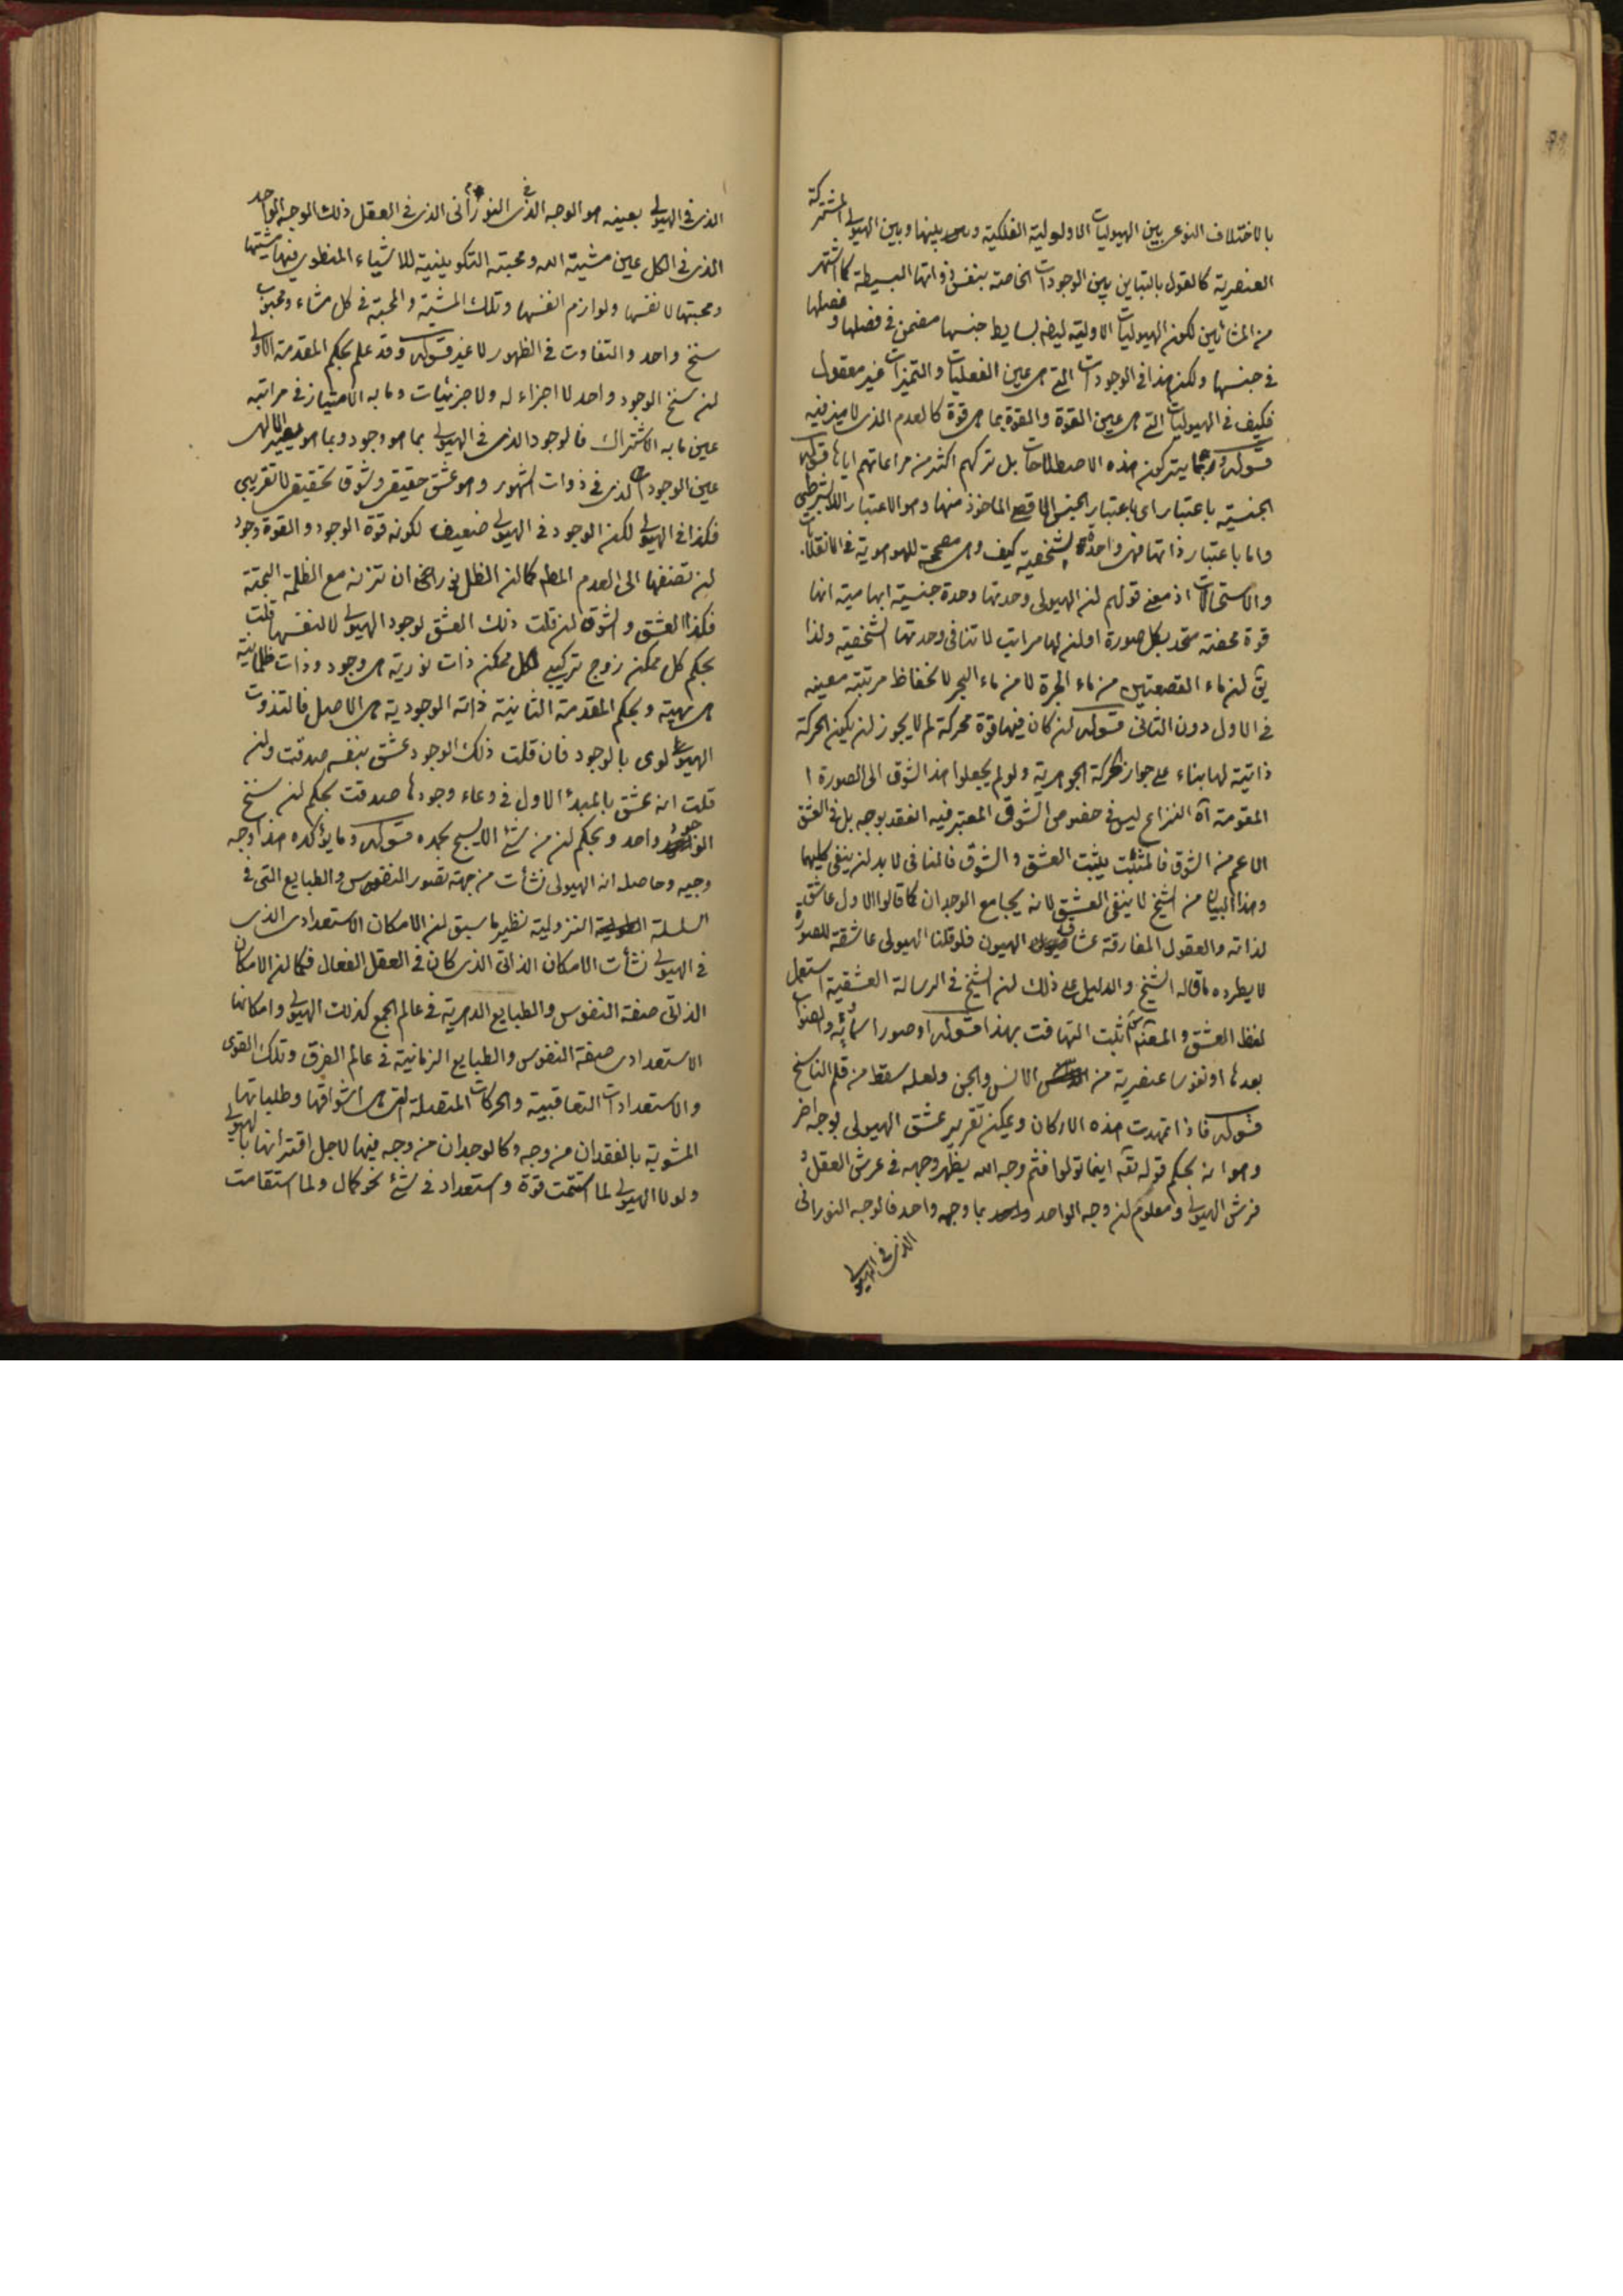 بالاختلاف النوعى بين الهيوليات الاولوليه الفلكية وبينها وبين الهيولى المشتركة
العنصرية كالقول بالتباين بين الوجودات الخاصة بنفس ذواتها البسيطة كما اشتهر
من المشائين لكون الهيوليات الاولية ايضا بسايط جنسها مضمن فى فصلها وفصلها
فى جنسها ولكن هذا فى الوجودات التى هى عين الفعليات والتميزات غير معقول
فكيف فى الهيوليات التى هى عين القوة والقوة بما هى قوة كالعدم الذى لا ميز فيه
قوله وربما يتركون هذه الاصطلاحات بل تركهم اكثر من مراعاتهم اياها قوله
الجنسية باعتبار اى باعتبار الجنس الماخوذ منها وهو الاعتبار اللابشرطى
واما باعتبار ذاتها فهى واحدة بالشخصية كيف وهى مصححة للهوهوية فى الانقلابات
والاستحالات اذ معنى قولهم ان الهيولى وحدتها وحدة جنسية ابهامية انها
قوة محضة متحد بكل صورة او ان لها مراتب لا تنافى وحدتها الشخصية ولذا
يق ان ماء القصعتين من ماء الجرة لا من ماء البحر لانحفاظ مرتبة معينه
فى الاول دون الثانى قوله ان كان فيها قوة محركة لم لا يجوز ان يكون الحركة
ذاتية لها بناء على جواز الحركة الجوهرية ولو لم يجعلوا هذا الشوق الى الصورة ا
المقومة آه النزاع ليس فى خصوص الشوق المعتبر فيه الفقد بوجه بل فى العشق
الاعم من الشوق فالمثبت يثبت العشق والشوق فالنافى لا بد ان ينفى كليهما
وهذا البيان من الشيخ لا ينفى العشق لانه يجامع الوجدان كما قالوا الاول عاشق
لذاته والعقول المفارقة عشاق الهيون فلو قلنا الهيولى عاشقة للصورة
لا يطرده ما قاله الشيخ والدليل على ذلك ان الشيخ فى الرسالة العشقية استعمل
لفظ العشق والمصنف اثبت التهافت بهذا قوله او صورا سمائيه والصواب
بعدها او نفوسا عنصرية من الانس والجن ولعله سقط من قلم الناسخ
قوله فاذا تمهدت هذه الاركان ويمكن تقرير عشق الهيولى بوجه اخر
وهو انه بحكم قوله تعه اينما تولوا فثم وجه الله يظهر وجهه فى عرش العقل و
فرش الهيولى ومعلوم ان وجه الواحد بما وجهه واحد فالوجه النورانى
الذى فى الهيولى
الذى فى الهيولى بعينه هو الوجه النورانى الذى فى العقل ذلك الوجه الواحد
الذى فى الكل عين مشية الله ومحبته التكوينية للاشياء المنطوى فيها مشيتها
ومحبتها لانفسها ولوازم انفسها وتلك المشية والمحبة فى كل مشاء ومحبوب
سنخ واحد والتفاوت فى الظهور لا غير قوله وقد علم بحكم المقدمة الاولى
ان سنخ الوجود واحد لا اجزاء له ولا جزئيات وما به الامتياز فى مراتبه
عين ما به الاشتراك فالوجود الذى فى الهيولى بما هو وجود وبما هو
عين الوجودات الذى فى ذوات الشهور وهو عشق حقيقى وشوق تحقيقى لا تقريبى
فكذا فى الهيولى لكن الوجود فى الهيولى ضعيف لكونه قوة الوجود والقوة وجود
ان تضفها الى العدم المطلق كما ان الظل نور ان تزنه مع الظلمة البحتة
فكذا العشق والشوق ان قلت ذلك العشق لوجود الهيولى لا لنفسها قلت
بحكم كل ممكن زوج تركيبى لكل ممكن ذات نورية هى وجود وذات ظلمانية
هى مهية وبحكم المقدمة الثانية ذاته الوجودية هى الاصل فالتذوت
الهيولوى بالوجود فان قلت ذلك الوجود عشق بنفسه صدقت وان
قلت انه عشق بالمبدأ الاول فى وعاء وجودها صدقت بحكم ان سنخ
الوجود واحد وبحكم ان من شئ الا يسبح بحمده قوله ومما يؤكده هذا وجه
وجيه وحاصله ان الهيولى نشأت من جهة تصور النفوس والطبايع التى فى
السلسلة النزولية نظير ما سبق ان الامكان الاستعدادى الذى
فى الهيولى نشأت الامكان الذاتى الذى كان فى العقل الفعال فكما ان الامكان
الذاتى صفة النفوس والطبايع الدهرية فى عالم الجمع كذلك الهيولى وامكانها
الاستعدادى صفة النفوس والطبايع الزمانية فى عالم الفرق وتلك القوى
والاستعدادات التعاقبية والحركات المتصلة التى هى اشواقها وطلباتها
المشوبة بالفقدان من وجه وكالوجدان من وجه فيها لاجل اقترانها بالهيولى
ولولا الهيولى لما استتمت قوة واستعداد فى شئ نحو كمال ولما استقامت